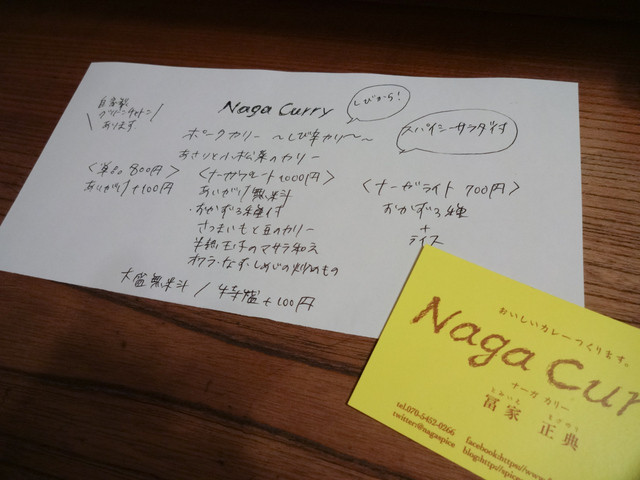 自家製
グリーンチャトニ
あります
Naga Curry
しびから!
ポークカリー 〜しび辛カリー〜
スパイシーサラダ付
あさりと小松菜のカリー
〈単品 800円〉
あいがけ+100円
〈ナーガプレート 1000円〉
あいがけ無料
・おかず3種付
さつまいもと豆のカリー
半熟玉子のマサラ和え
オクラ・なす・しめじの炒めもの
〈ナーガライト 700円〉
おかず3種
+
ライス
大盛無料 / 特盛+100円
おいしいカレーつくります。
Naga Cur
ナーガ カリー
冨家 正典
tel.070-5452-0266
twitter@nagaspice
facebook:https://www.
blog:http://spice